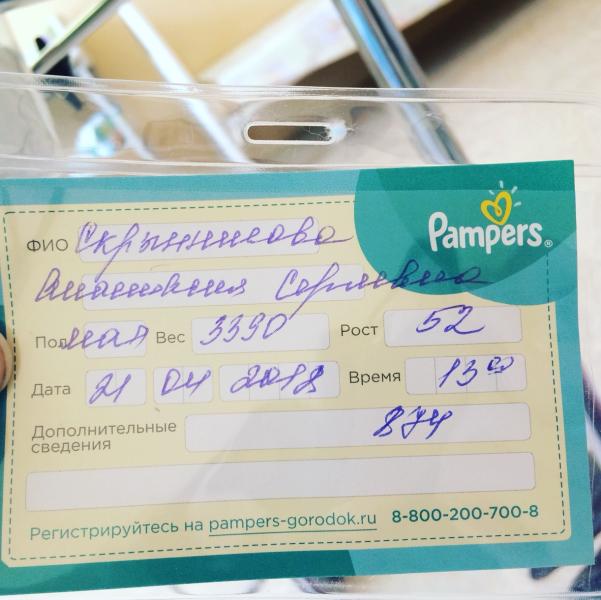 Pampers®
ФИО Скрынникова
Анастасия Сергеевна
Пол мал Вес 3390 Рост 52
Дата 21 04 2018 Время 13 00
Дополнительные сведения 874
Регистрируйтесь на pampers-gorodok.ru 8-800-200-700-8